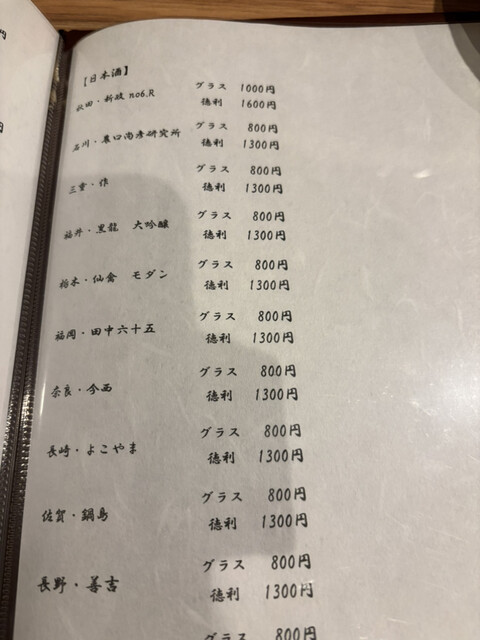 円
円
【日本酒】
秋田・新政 no6.R グラス 1000円
徳利 1600円
石川・農口尚彦研究所 グラス 800円
徳利 1300円
三重・作 グラス 800円
徳利 1300円
福井・黒龍 大吟醸 グラス 800円
徳利 1300円
栃木・仙禽 モダン グラス 800円
徳利 1300円
福岡・田中六十五 グラス 800円
徳利 1300円
奈良・今西 グラス 800円
徳利 1300円
長崎・よこやま グラス 800円
徳利 1300円
佐賀・鍋島 グラス 800円
徳利 1300円
長野・善吉 グラス 800円
徳利 1300円
グラス 800円